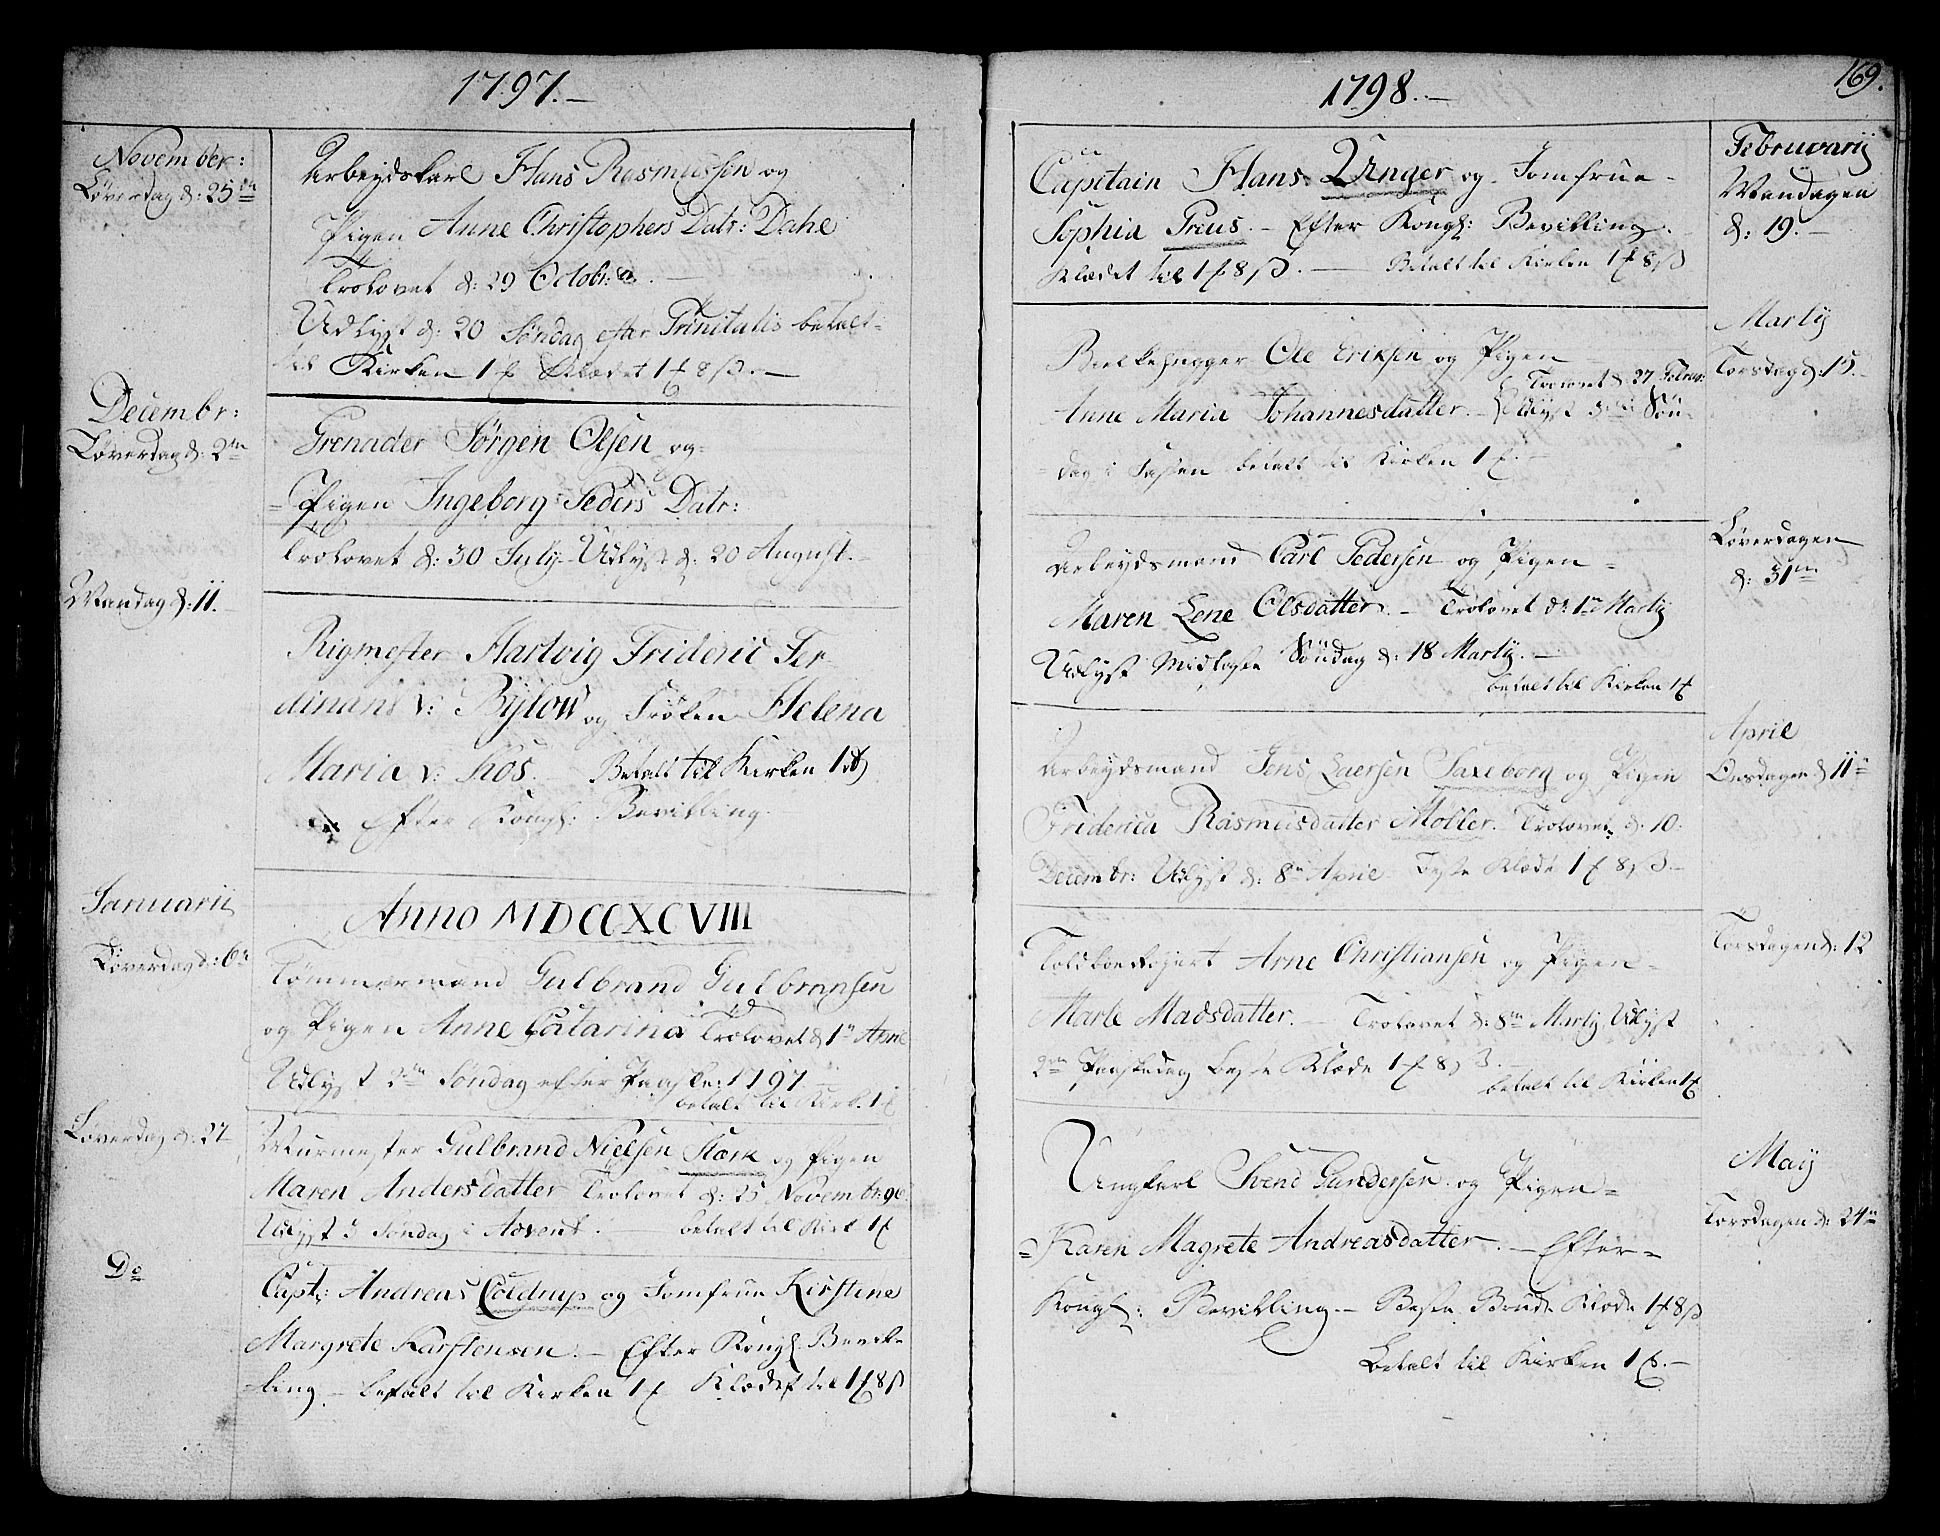 1797.-
November:
Løverdag d: 25de
Arbeydskarl Hans Rasmussen og
Pigen Anne Christophers Datr: Dahl
Trolovet d: 29 Octobr:
Udlyst d: 20 Søndag efter Trinitatis betalt
til Kirken 1 Klædet 1 8 ß.-
Decembr:
Løverdag d: 2den
Grenader Jørgen Olsen og
Pigen Ingeborg Peders Datr:
Trolovet d: 30 July. Udlyst d: 20 August.-
Mandag d: 11.
Rigmester Hartvig Frideric Fer-
dinand v: Bÿlow og Frøken Helena
Maria v: Kos. Betalt til Kirken 1
Efter Kongl: Bevilling.
Januarii
Anno MDCCXCVIII
Løverdag d: 6te
Tømmermand Gulbrand Gulbransen
og Pigen Anne Catarina Trolovet d 1te April
Udlyst 2den Søndag efter Paaske: 1797
betalt til Kirk. 1
Løverdag d: 27
Murmester Gulbrand Nielsen Stærk og Pigen
Maren Andersdatter Trolovet d: 25 Novembr: 96
Udlyst 3 Søndag i Advent. betalt til Kirk 1
Do
Capt: Andreas Coldrup og Jomfrue Kirstine
Margrete Karstensen. - Efter Kongl. Bevil-
ling - betalt til Kirken 1 Klædet til 1 8 ß
169.
1798.-
Februarij
Mandagen
d: 19.-
Capitain Hans Unger og Jomfrue
Sophia Preus. - Efter Kongl: Bevilling.
Klædet til 1 8 ß. - Betalt til Kirken 1 8 ß
Martij
Torsdag d: 15.
Bielkehugger Ole Eriksen og Pigen
Anne Maria Johannesdatter. Trolovet d: 27 Febru:
Udlyst Søn-
dag i Fasten betalt til Kirken 1
Løverdagen
d: 31te
Arbeydsmand Carl Pedersen og Pigen
Maren Lene Olsdatter. - Trolovet d: 1te Martij
Udlyst Midfaste Søndag d: 18 Martij. -
betalt til Kirken 1
April
Onsdagen d 11te
Arbeydsmand Jens Laersen Saxeborg og Pigen
Friderica Rasmusdatter Møller. Trolovet d: 10
Decembr: Udlyst d: 8de April Beste Klæde 1 8 ß -
Torsdagen d: 12
Toldbetient Arne Christiansen og Pigen
Marte Madsdatter. - Trolovet d: 8de Martij Udlyst
2den Paaskedag Beste Klæde 1 8 ß.
betalt til Kirken 1
May
Torsdagen d: 24de
Ungkarl Svend Gundersen og Pigen
Karen Magrete Andreasdatter. - Efter
Kongl: Bevilling. - Beste Brude Klæde 1 8 ß
Betalt til Kirken 1 -